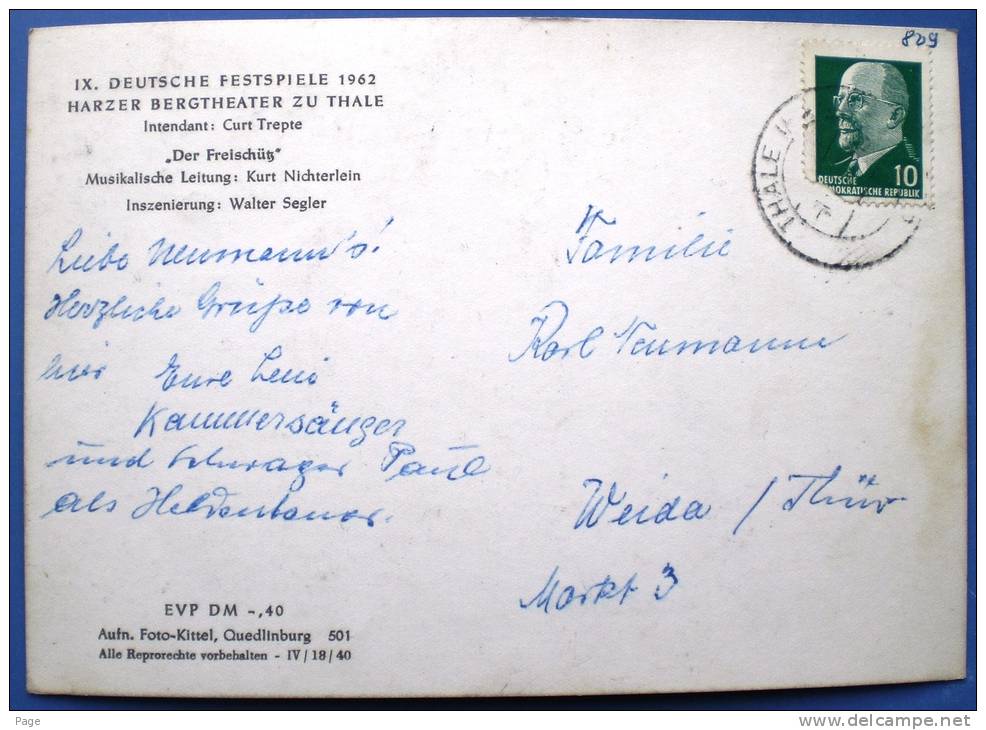 IX. DEUTSCHE FESTSPIELE 1962
HARZER BERGTHEATER ZU THALE
Intendant: Curt Trepte
„Der Freischütz"
Musikalische Leitung: Kurt Nichterlein
Inszenierung: Walter Segler
Liebe Neumann's!
Herzliche Grüße von
hier Eure Leni
Kammersänger
und Schwager Paul
als Heldentenor.
EVP DM -,40
Aufn. Foto-Kittel, Quedlinburg 501
Alle Reprorechte vorbehalten - IV/18/40
809
10
DEUTSCHE
DEMOKRATISCHE REPUBLIK
THALE
Familie
Karl Neumann
Weida / Thür
Markt 3
Page
www.delcampe.net